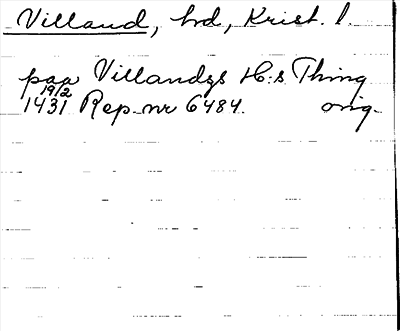 Villand, hd, Krist. l.
paa Villandzs H:s Thing
19/2
1431 Rep. nr 6484. orig.